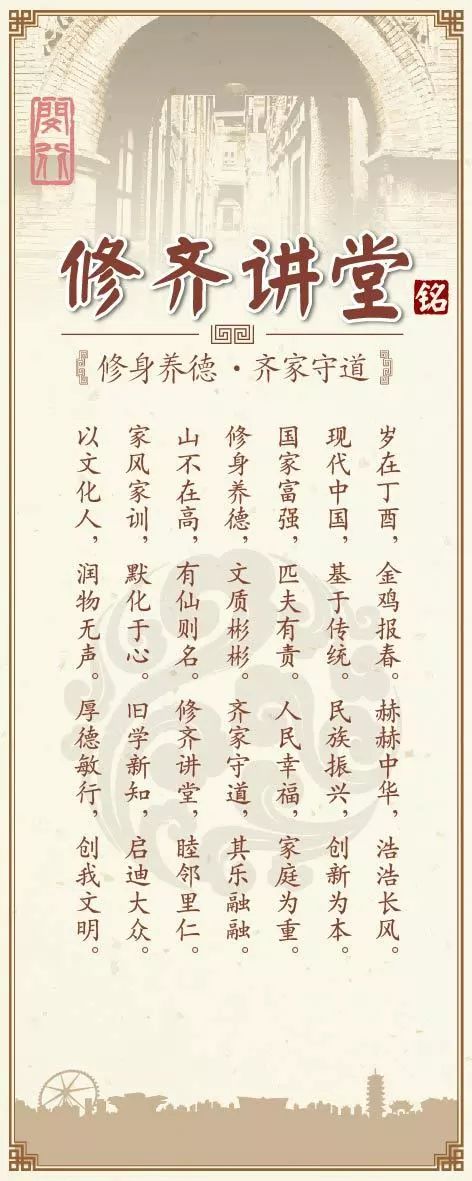 閔行
修齐讲堂
铭
修身养德·齐家守道
岁在丁酉，金鸡报春。赫赫中华，浩浩长风。
现代中国，基于传统。民族振兴，创新为本。
国家富强，匹夫有责。人民幸福，家庭为重。
修身养德，文质彬彬。齐家守道，其乐融融。
山不在高，有仙则名。修齐讲堂，睦邻里仁。
家风家训，默化于心。旧学新知，启迪大众。
以文化人，润物无声。厚德敏行，创我文明。